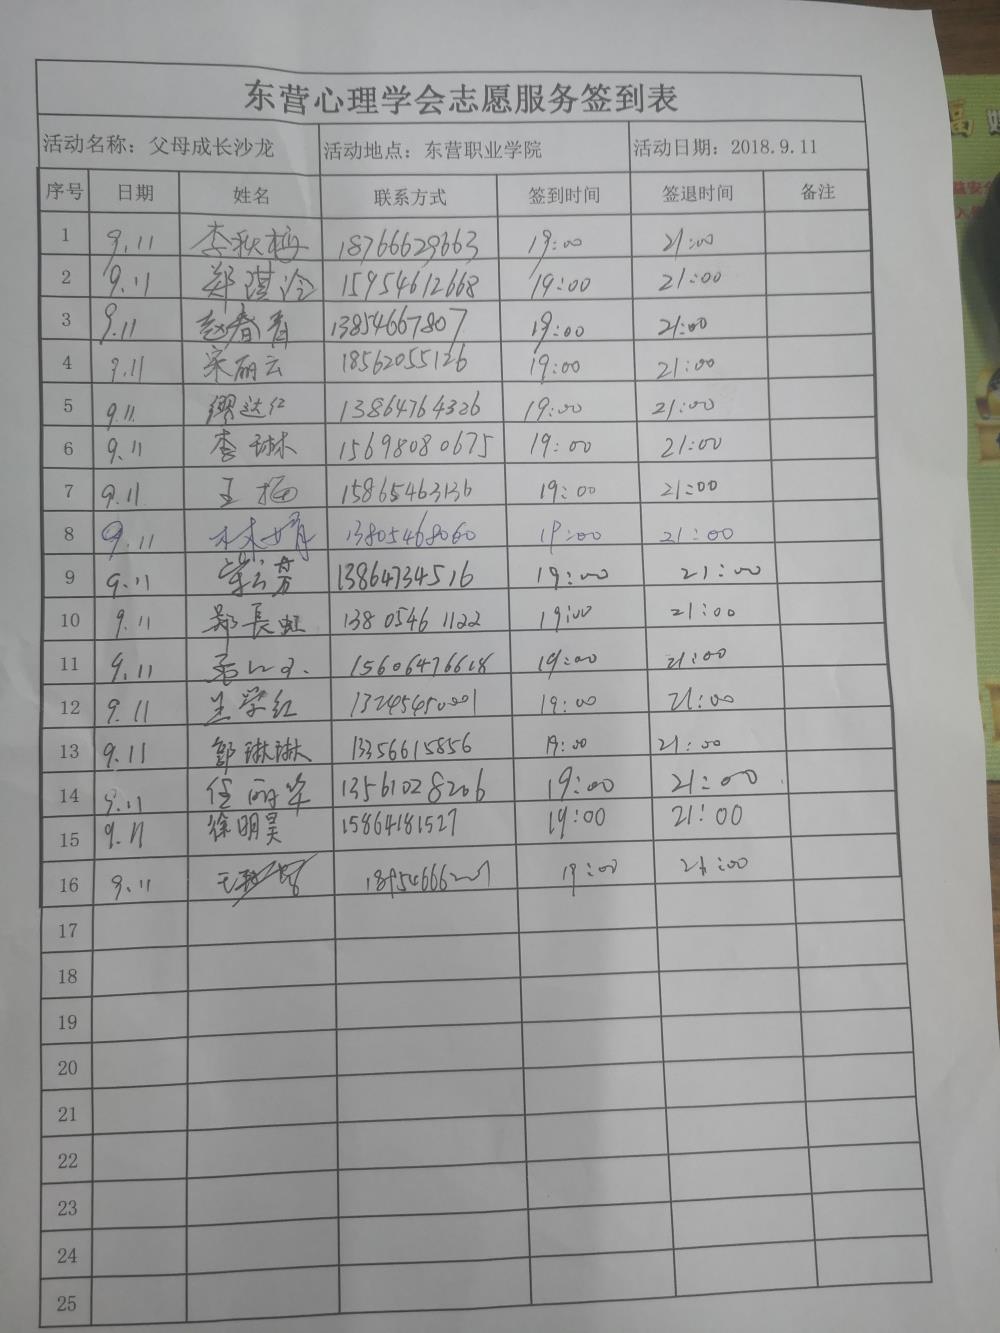 东营心理学会志愿服务签到表
活动名称：父母成长沙龙 活动地点：东营职业学院 活动日期：2018.9.11
序号 日期 姓名 联系方式 签到时间 签退时间 备注
1 9.11 李秋梅 18766629663 19:00 21:00
2 9.11 郑琪冷 15954612668 19:00 21:00
3 9.11 赵春香 13854667807 19:00 21:00
4 9.11 宋丽云 18562055126 19:00 21:00
5 9.11 缪达仁 13864764326 19:00 21:00
6 9.11 李琳 15698080675 19:00 21:00
7 9.11 王梅 15865463136 19:00 21:00
8 9.11 林婧 13805468060 19:00 21:00
9 9.11 13864734516 19:00 21:00
10 9.11 郑長虹 13805461122 19:00 21:00
11 9.11 15606476618 19:00 21:00
12 9.11 兰学红 13245450001 19:00 21:00
13 9.11 郭琳琳 13356615856 19:00 21:00
14 9.11 任丽华 13561028206 19:00 21:00
15 9.11 徐明昊 15864181527 19:00 21:00
16 9.11 19:00 21:00
17
18
19
20
21
22
23
24
25
福